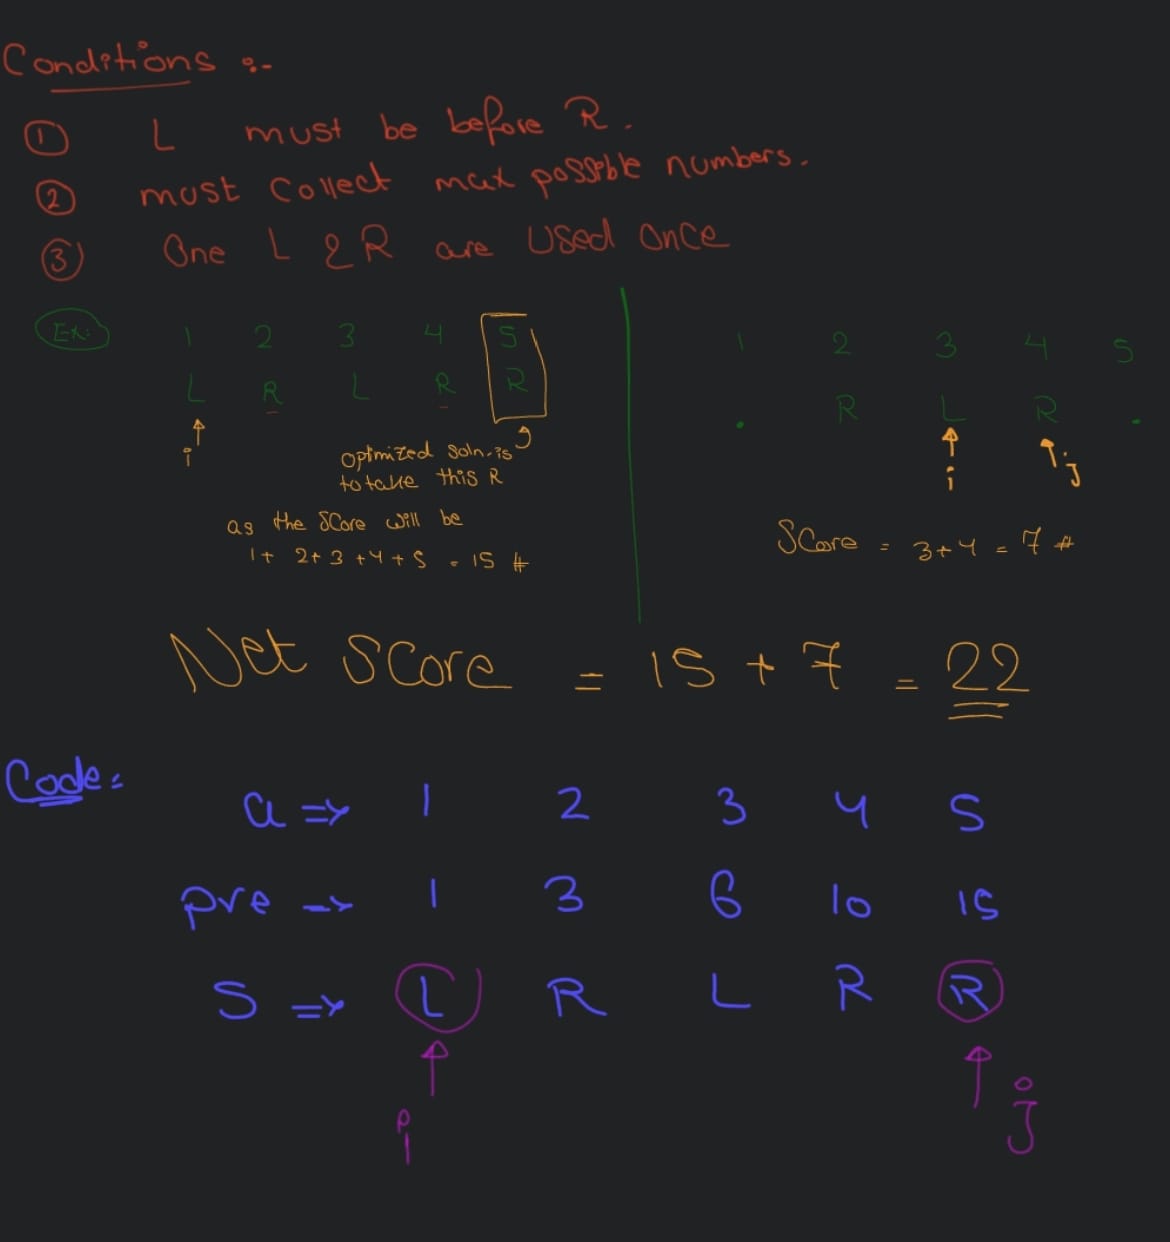 Conditions :-
① L must be before R.
② must Collect max possible numbers.
③ One L & R are Used Once
Ex:
1 2 3 4 5
L R L R R
i j
optimized soln. is
to take this R
as the SCore will be
1+ 2+3+4+5 = 15 #
1 2 3 4 5
. R L R .
i j
SCore = 3+4 = 7 #
Net SCore = 15 + 7 = 22
Code:
a => 1 2 3 4 5
pre => 1 3 6 10 15
S => L R L R R
i j